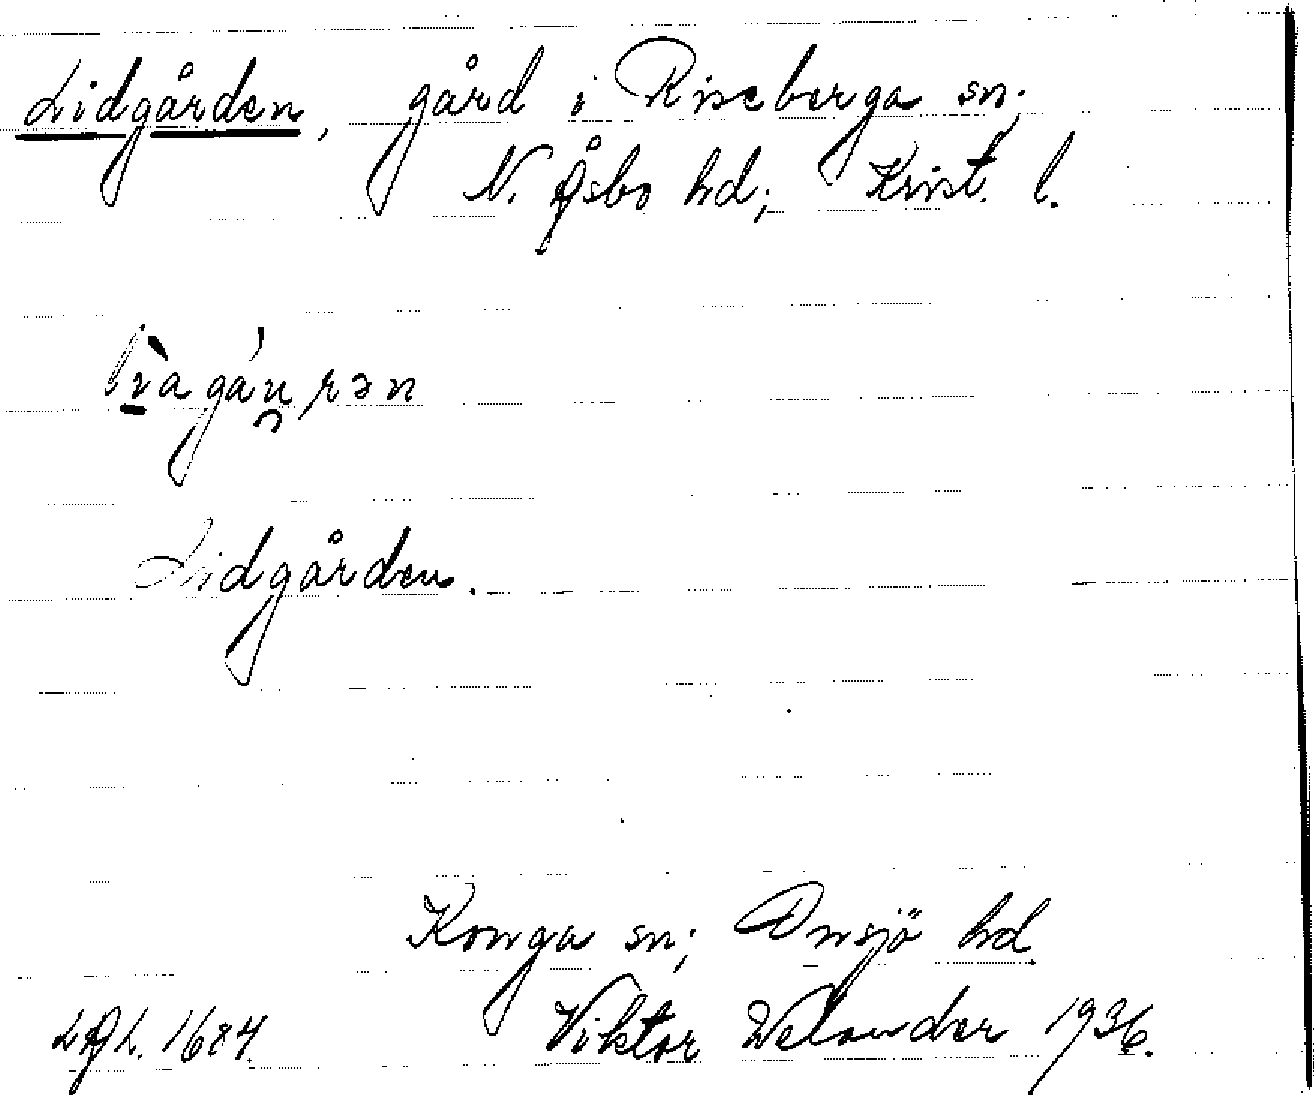 Lidgården, gård i Riseberga sn;
N. Åsbo hd; Krist. l.
Lidgården.
Konga sn; Onsjö hd.
LAL. 1684. Viktor Welander 1936.